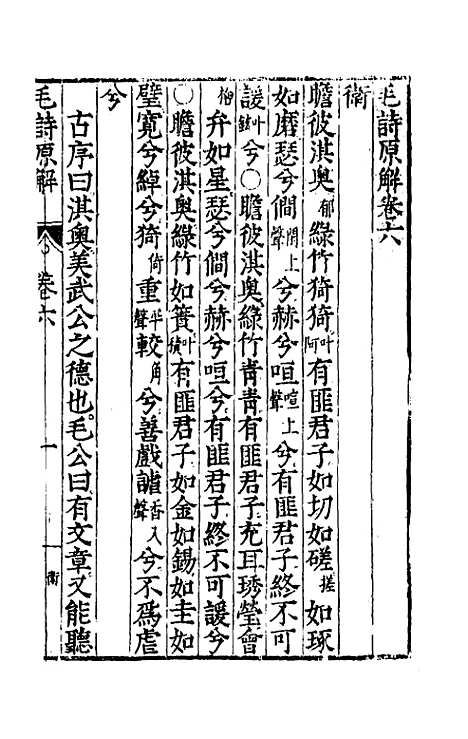 毛詩原解卷六
衛
瞻彼淇奧郁綠竹猗猗叶阿有匪君子如切如磋搓如琢
如磨瑟兮僩閒上聲兮赫兮咺喧上聲兮有匪君子終不可
諼叶喧兮〇瞻彼淇奧綠竹青青有匪君子充耳琇瑩會
弁如星瑟兮僩兮赫兮咺兮有匪君子終不可諼兮
〇瞻彼淇奧綠竹如簀叶積有匪君子如金如錫如圭如
璧寬兮綽兮猗倚重平聲較角兮善戲謔香入聲兮不爲虐
兮
古序曰淇奧美武公之德也毛公曰有文章又能聽
毛詩原解
卷六
一
衛